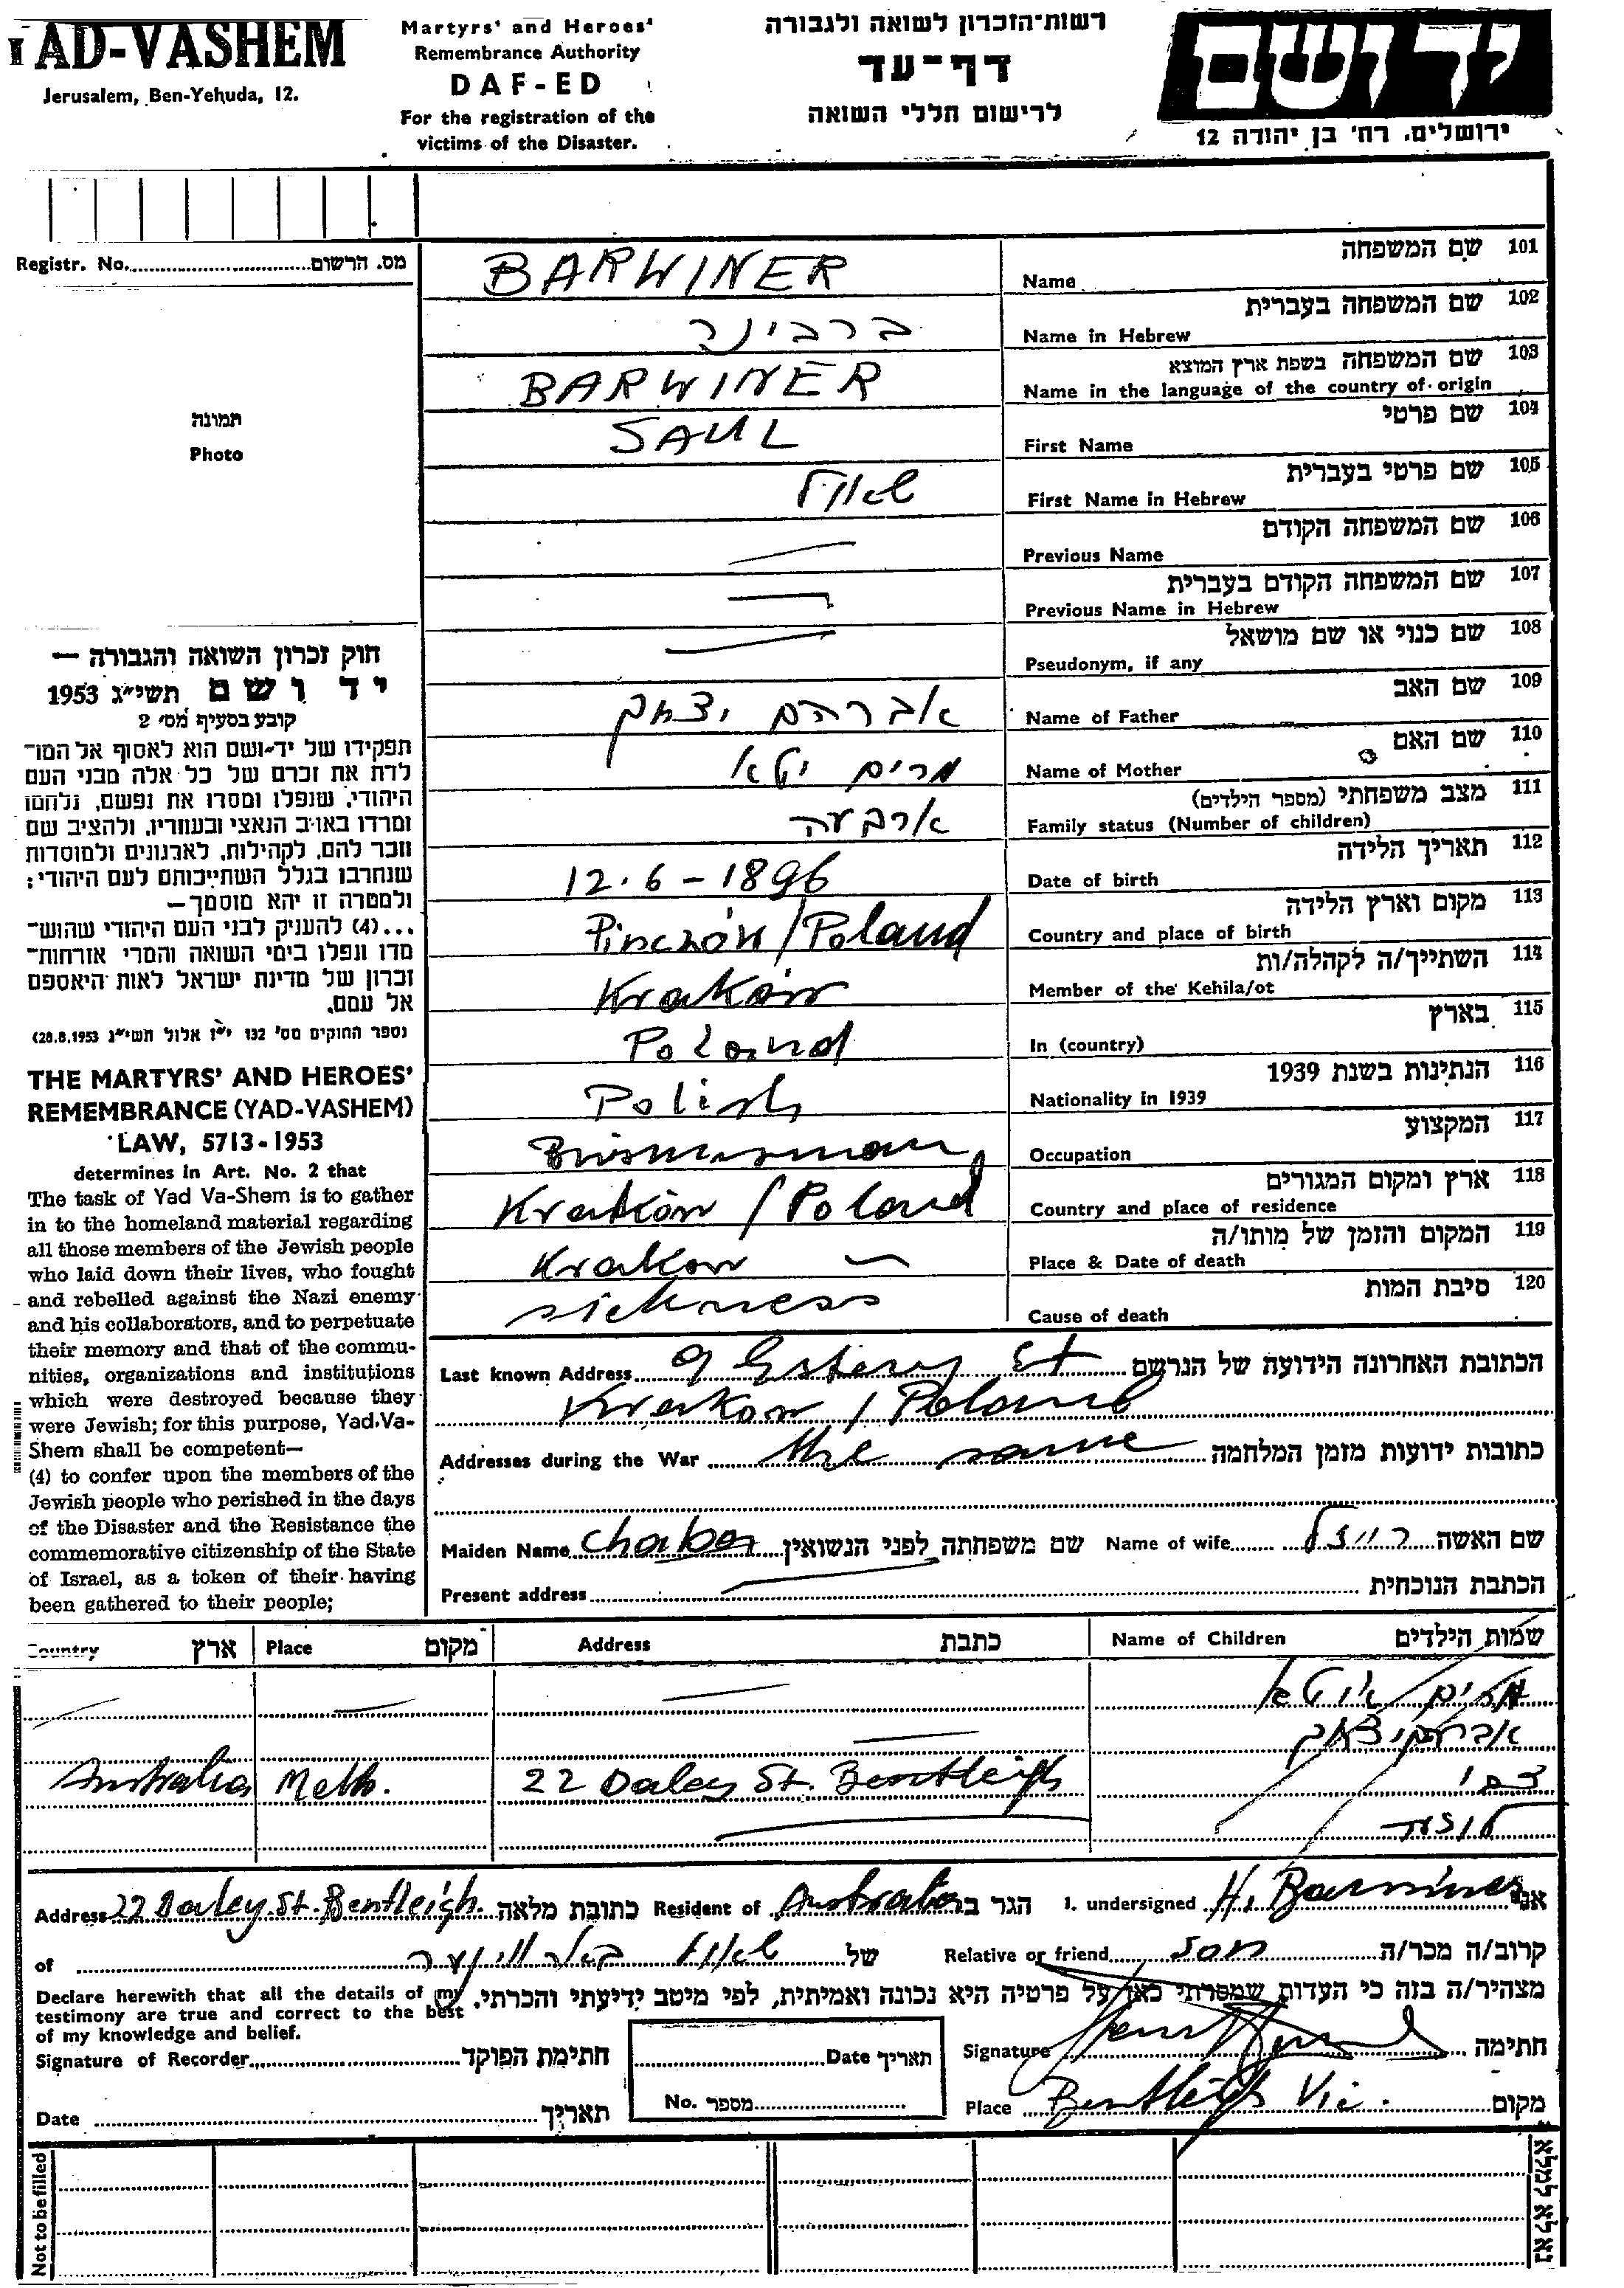 YAD-VASHEM
Jerusalem, Ben-Yehuda, 12.
Martyrs' and Heroes'
Remembrance Authority
DAF-ED
For the registration of the
victims of the Disaster.
רשות-הזכרון לשואה ולגבורה
דף-עד
לרישום חללי השואה
יד ושם
ירושלים, רח' בן יהודה 12
Registr. No. מס. הרשום
תמונה
Photo
חוק זכרון השואה והגבורה —
יד ושם תשי"ג 1953
קובע בסעיף מס' 2
תפקידו של יד-ושם הוא לאסוף אל המו־
לדת את זכרם של כל אלה מבני העם
היהודי, שנפלו ומסרו את נפשם, נלחמו
ומרדו באויב הנאצי ובעוזריו, ולהציב שם
וזכר להם, לקהילות, לארגונים ולמוסדות
שנחרבו בגלל השתייכותם לעם היהודי;
ולמטרה זו יהא מוסמך—
...(4) להעניק לבני העם היהודי שהוש־
מדו ונפלו בימי השואה והמרי אזרחות־
זכרון של מדינת ישראל לאות היאספם
אל עמם.
(ספר החוקים מס' 132 י"ז אלול תשי"ג 28.8.1953)
THE MARTYRS' AND HEROES'
REMEMBRANCE (YAD-VASHEM)
LAW, 5713-1953
determines in Art. No. 2 that
The task of Yad Va-Shem is to gather
in to the homeland material regarding
all those members of the Jewish people
who laid down their lives, who fought
and rebelled against the Nazi enemy
and his collaborators, and to perpetuate
their memory and that of the commu-
nities, organizations and institutions
which were destroyed because they
were Jewish; for this purpose, Yad Va-
Shem shall be competent—
(4) to confer upon the members of the
Jewish people who perished in the days
of the Disaster and the Resistance the
commemorative citizenship of the State
of Israel, as a token of their having
been gathered to their people;
BARWINER Name שם המשפחה 101
ברבינר Name in Hebrew שם המשפחה בעברית 102
BARWINER Name in the language of the country of origin שם המשפחה בשפת ארץ המוצא 103
SAUL First Name שם פרטי 104
שאול First Name in Hebrew שם פרטי בעברית 105
Previous Name שם המשפחה הקודם 106
Previous Name in Hebrew שם המשפחה הקודם בעברית 107
Pseudonym, if any שם כנוי או שם מושאל 108
אברהם יצחק Name of Father שם האב 109
מרים יטא Name of Mother שם האם 110
ארבעה Family status (Number of children) מצב משפחתי (מספר הילדים) 111
12.6-1896 Date of birth תאריך הלידה 112
Pinczów/Poland Country and place of birth מקום וארץ הלידה 113
Kraków Member of the Kehila/ot השתייך/ה לקהלה/ות 114
Poland In (country) בארץ 115
Polish Nationality in 1939 הנתינות בשנת 1939 116
Businessman Occupation המקצוע 117
Kraków / Poland Country and place of residence ארץ ומקום המגורים 118
Krakow Place & Date of death המקום והזמן של מותו/ה 119
sickness Cause of death סיבת המות 120
Last known Address 9 Estery St הכתובת האחרונה הידועה של הנרשם
Krakow / Poland
Addresses during the War the same כתובות ידועות מזמן המלחמה
Maiden Name Chaber שם משפחתה לפני הנשואין Name of wife רויזל שם האשה
Present address הכתבת הנוכחית
Country ארץ Place מקום Address כתבת Name of Children שמות הילדים
מרים
אברהם יצחק
Australia Melb. 22 Daley St. Bentleigh צבי
Address 22 Daley St. Bentleigh. כתובת מלאה Resident of Australia הגר ב I. undersigned H. Barwiner אני
of שאול של Relative or friend son קרוב/ה מכר/ה
מצהיר/ה בזה כי העדות שמסרתי כאן על פרטיה היא נכונה ואמיתית, לפי מיטב ידיעתי והכרתי.
Declare herewith that all the details of my
testimony are true and correct to the best
of my knowledge and belief.
Signature of Recorder חתימת הפוקד
Date תאריך
No. מספר
Signature חתימה
Date תאריך
Place Bentleigh Vic. מקום
Not to be filled
נא לא למלא